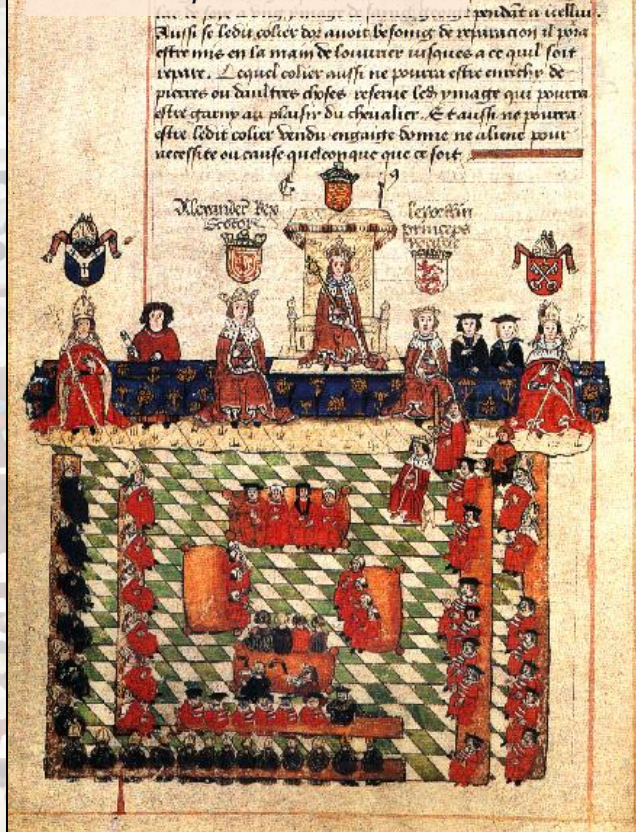 pendāt a icelluy.
Aussi se ledit colier dor auoit besoing de reparacion il pora
estre mis en la main de louurier iusques a ce quil soit
repare. Lequel colier aussi ne pourra estre enrichy de
pierres ou daultres choses reserue led ymage qui pourra
estre garny au plaisir du cheualier. Et aussi ne pourra
estre ledit colier vendu engaige donne ne aliene pour
necessite ou cause quelconque que ce soit
Alexander Rex
Scotorū
princeps